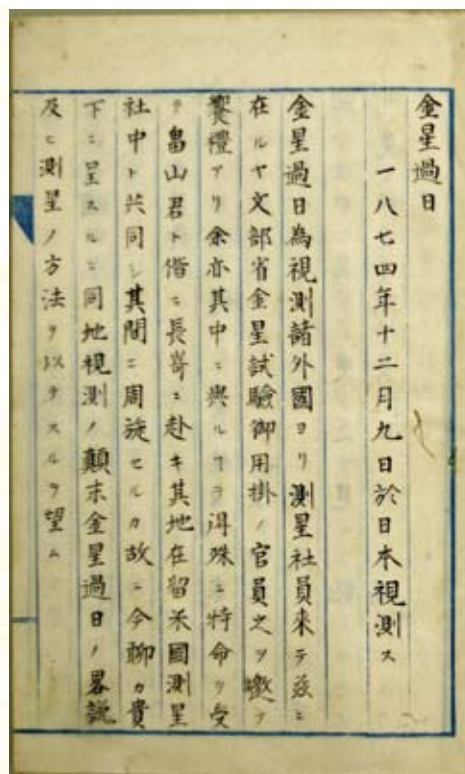 金星過日
一八七四年十二月九日於日本視測ス
金星過日為視測諸外國ヨリ測星社員來テ茲ニ
在ルヤ文部省金星試驗御用掛ノ官員之ヲ徼シテ
饗禮アリ余亦其中ニ與ルヿヲ得殊ニ特命ヲ受
ケ畠山君ト偕ニ長嵜ニ赴キ其地在留米國測星
社中ト共同シ其間ニ周旋セルカ故ニ今聊カ貴
下ニ呈スルニ同地視測ノ顛末金星過日ノ畧説
及ヒ測星ノ方法ヲ以テスルヲ望ム